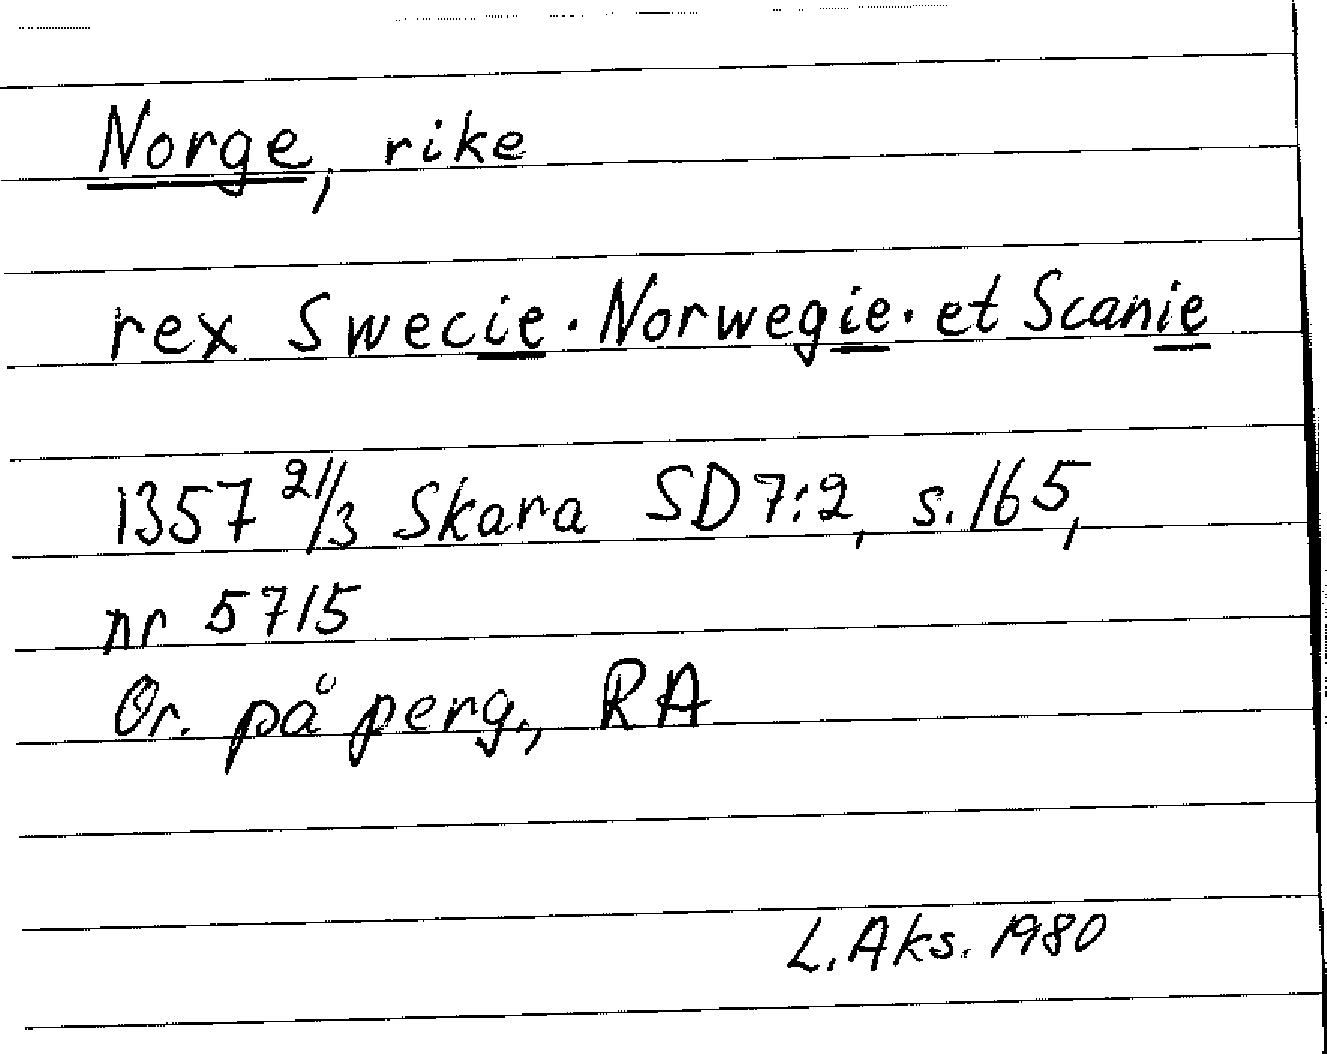 Norge, rike
rex Swecie · Norwegie · et Scanie
1357 21/3 Skara SD 7:2, s. 165,
nr 5715
Or. på perg., RA
L. Aks. 1980